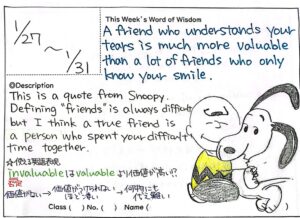 1/27
～
1/31
This Week's Word of Wisdom
A friend who understands your
tears is much more valuable
than a lot of friends who only
know your smile.
◎Description
This is a quote from Snoopy.
Defining "friends" is always difficult
but I think a true friend is
a person who spent your difficult
time together.
☆使える英語表現
invaluableはvaluableより価値が高い!?
価値がない→価値がつけられないほど凄い→何物にも代え難い
Class ( ) No. ( ) Name (